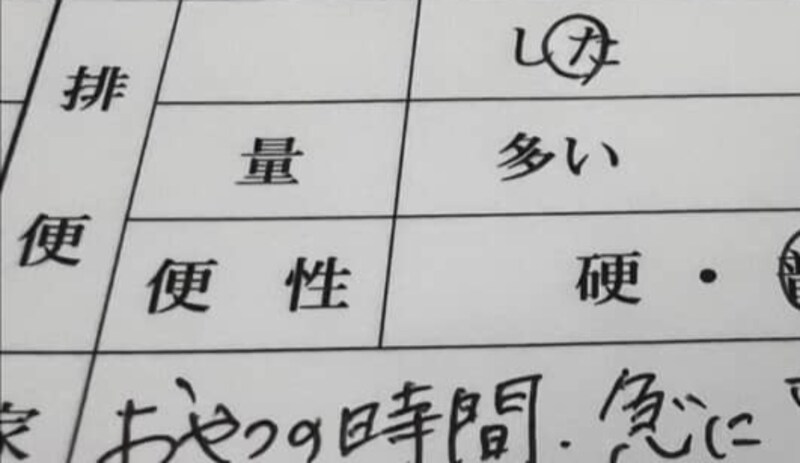 排便
した
量 多い
便性 硬・
おやつの時間. 急に